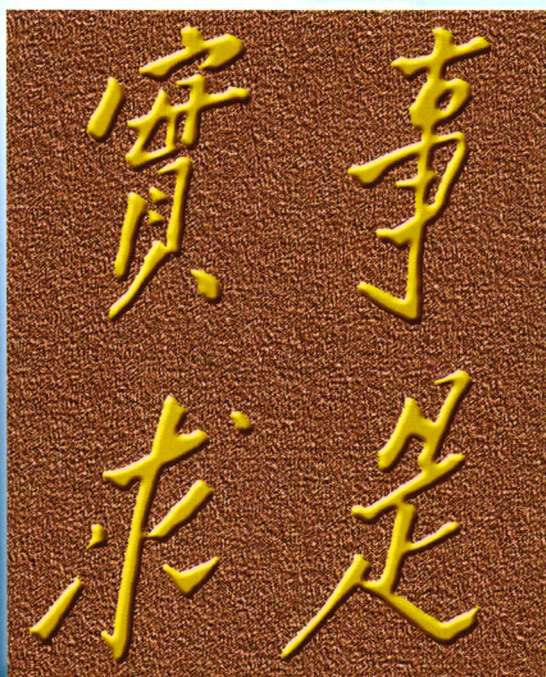 實事
求是